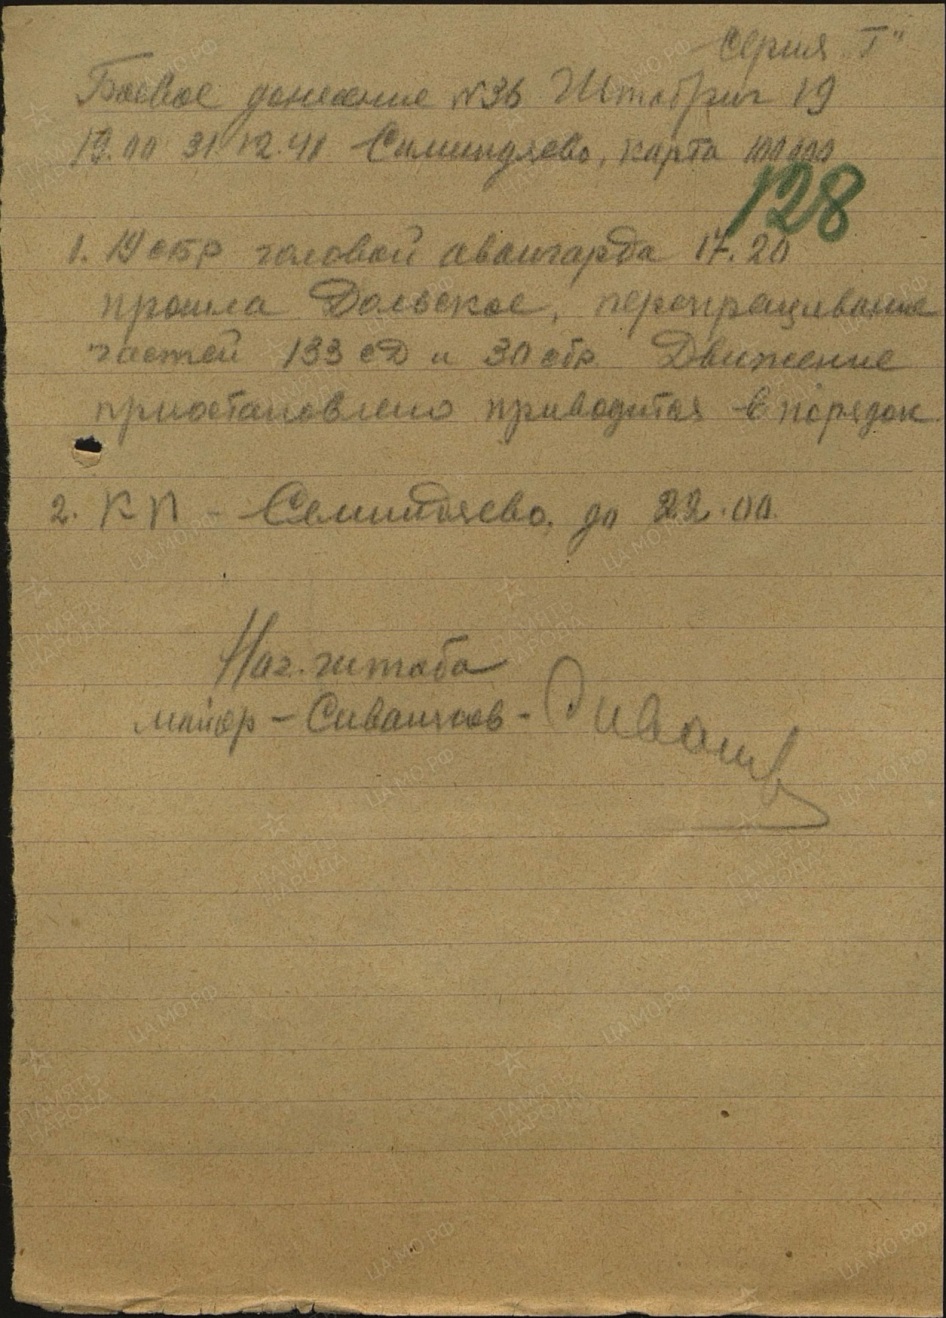 Серия "Г"
Боевое донесение №36 Штабриг 19
19.00 31.12.41 Семиндяево, карта 100000
128
1. 19 сбр головой авангарда 17.20
прошла Дольское,
частей 133 сД и 30 сбр. Движение
приостановлено приводится в порядок.
2. КП - Семиндяево, до 22.00.
Нач. штаба
майор - Сиваш
ЦА МО РФ
ПАМЯТЬ НАРОДА